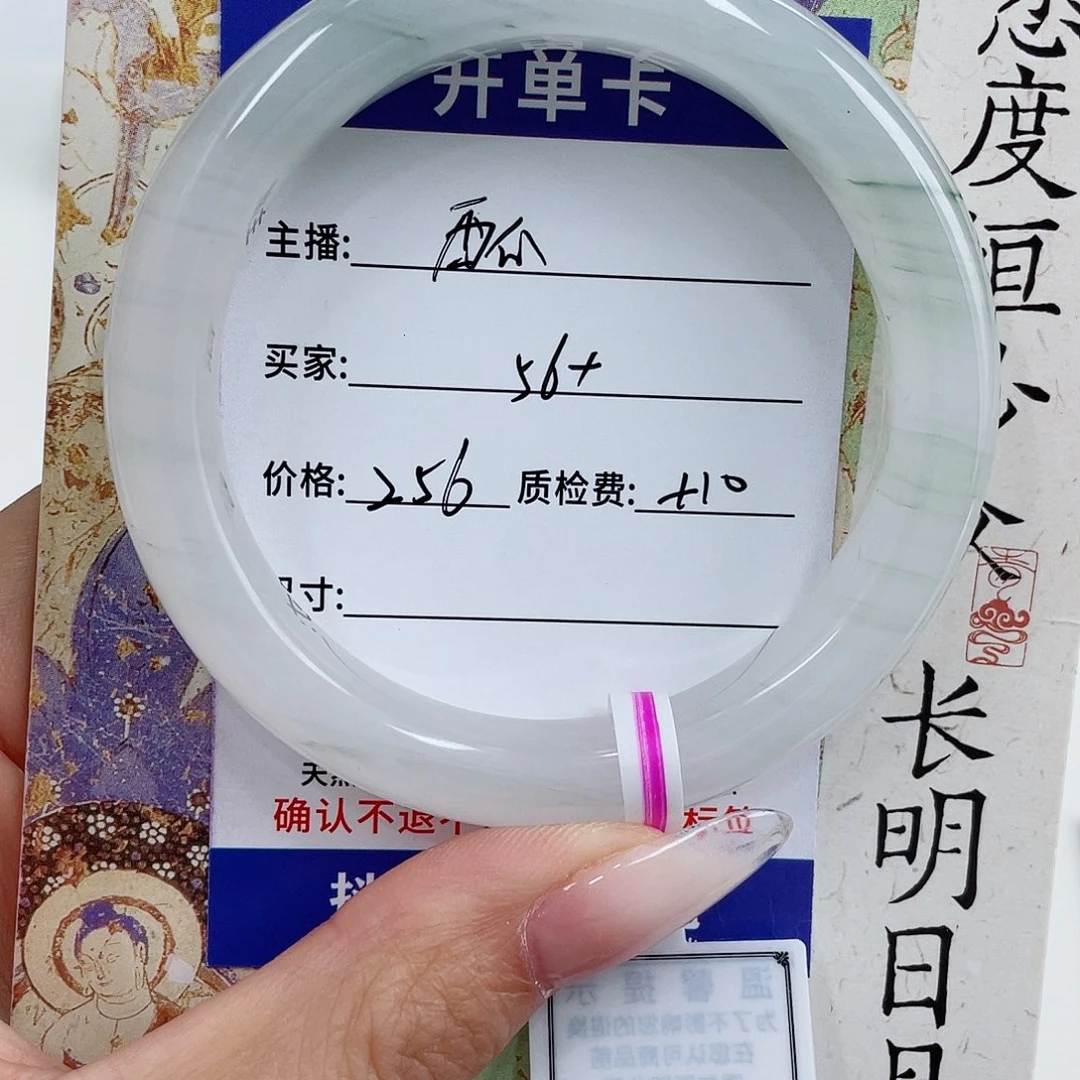 开单卡
主播: 西瓜
买家: 56+
价格: 256 质检费: +10
尺寸:
天然
确认不退不 标签
态度恒
长明日日
温馨提示
为了不影响您的退换
在您认可商品前